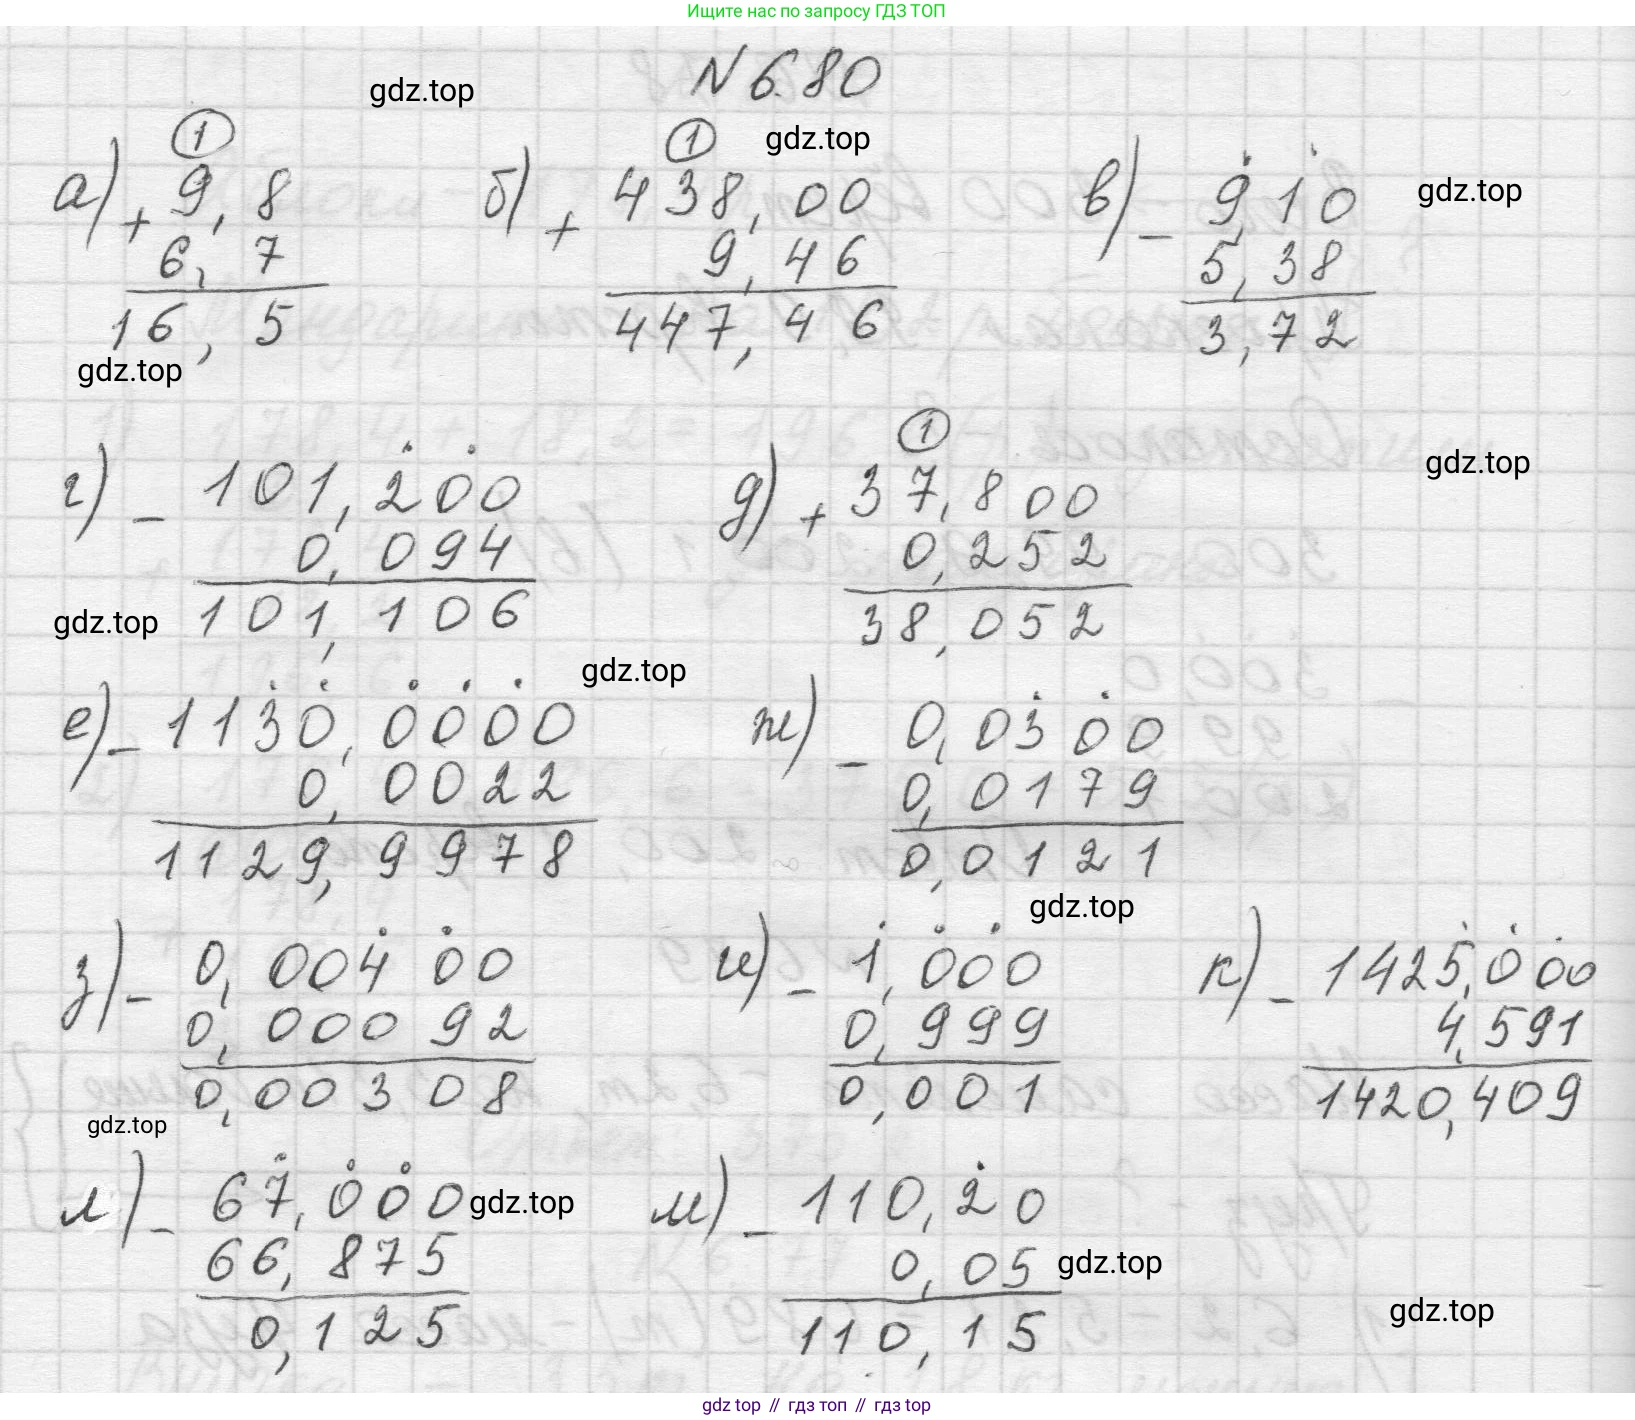 Ищите нас по запросу ГДЗ ТОП
N 680
gdz.top
gdz.top
1 1
а) + 9,8 б) + 438,00 в) - 9,10
gdz.top
6,7 9,46 5,38
16,5 447,46 3,72
gdz.top
1
г) - 101,200 д) + 37,800
gdz.top
0,094 0,252
101,106 38,052
gdz.top
gdz.top
е) - 1130,0000 ж) - 0,0300
0,0022 0,0179
1129,9978 0,0121
gdz.top
з) - 0,00400 и) - 1,000 к) - 1425,000
0,00092 0,999 4,591
0,00308 0,001 1420,409
gdz.top
л) - 67,000 м) - 110,20
gdz.top
66,875 0,05
gdz.top
0,125 110,15
gdz.top
gdz top // гдз топ // гдз top